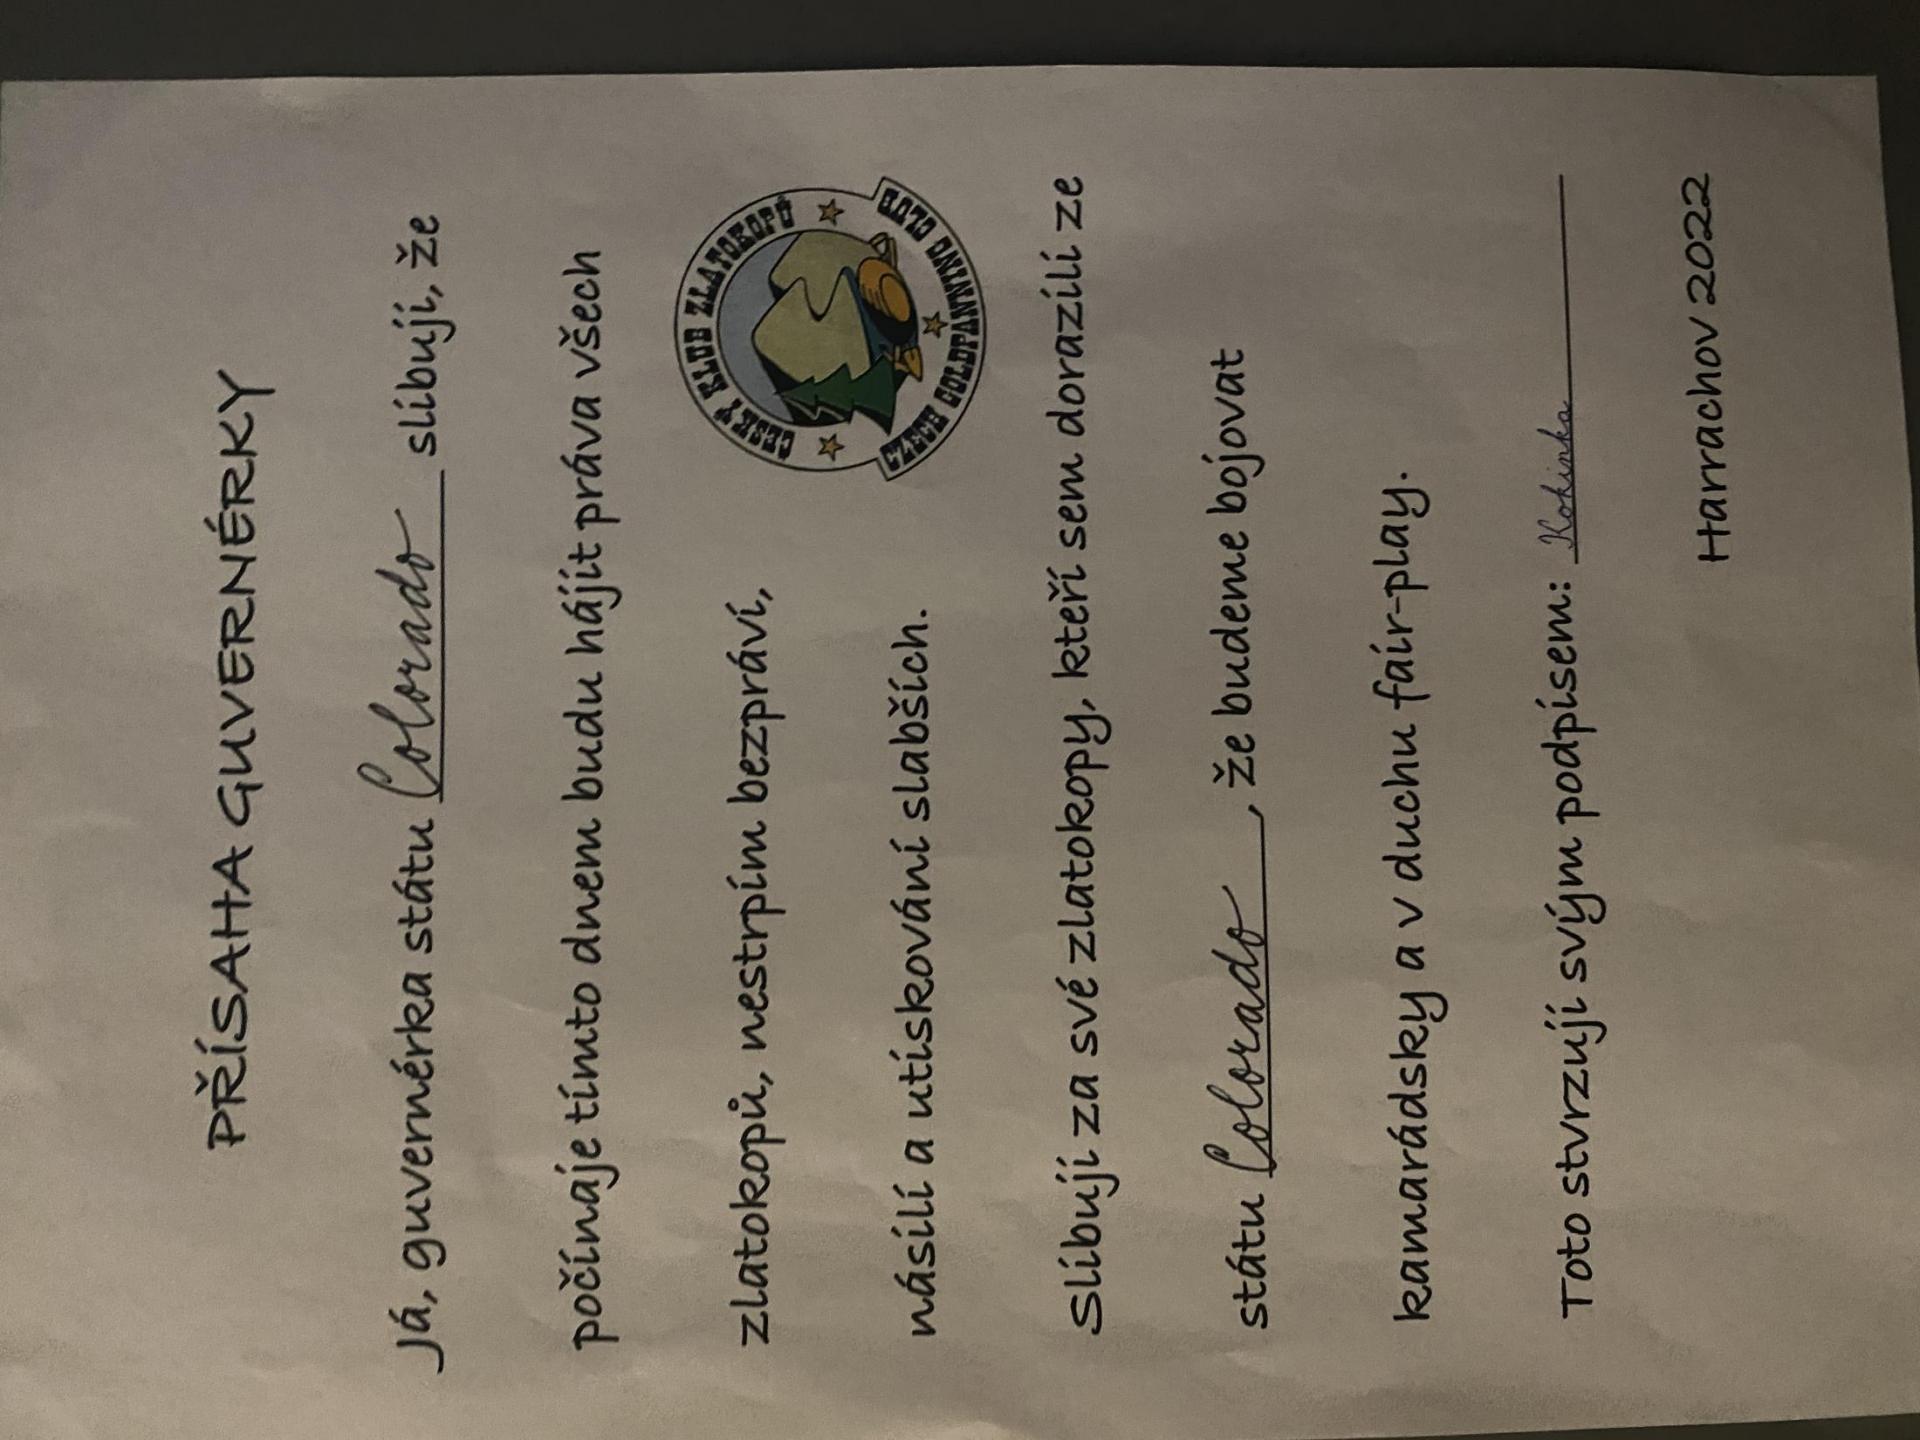 PŘÍSAHA GUVERNÉRKY
Já, guvernérka státu Colorado slibuji, že
počínaje tímto dnem budu hájit práva všech
zlatokopů, nestrpím bezpráví,
násilí a utiskování slabších.
ČESKÝ KLUB ZLATOKOPŮ
CZECH GOLDPANNING CLUB
Slibuji za své zlatokopy, kteří sem dorazili ze
státu Colorado, že budeme bojovat
kamarádsky a v duchu fair-play.
Toto stvrzuji svým podpisem: Kokinka
Harrachov 2022